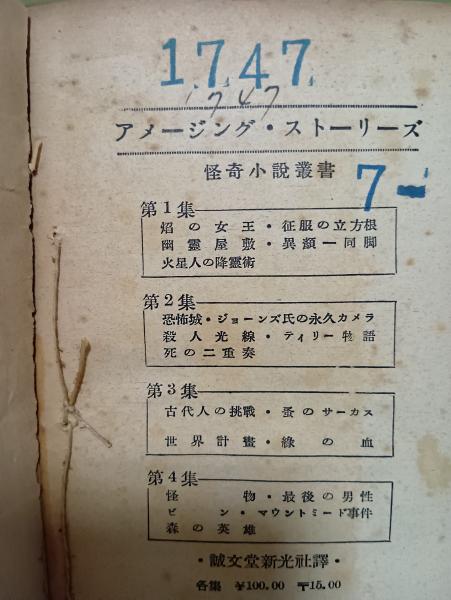 1747
1747
アメージング・ストーリーズ
怪奇小說叢書
7-
第1集
焰の女王・征服の立方根
幽靈屋敷・異顏一同脚
火星人の降靈術
第2集
恐怖城・ジョーンズ氏の永久カメラ
殺人光線・ティリー物語
死の二重奏
第3集
古代人の挑戰・蚤のサーカス
世界計畫・綠の血
第4集
怪物・最後の男性
ビン・マウントミード事件
森の英雄
・誠文堂新光社譯・
各集 ¥100.00 〒15.00